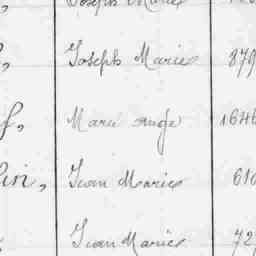 Joseph Marie
, Joseph Marie 879
f, Marie ange 1646
lin, Jean Marie 616
Jean Marie 727